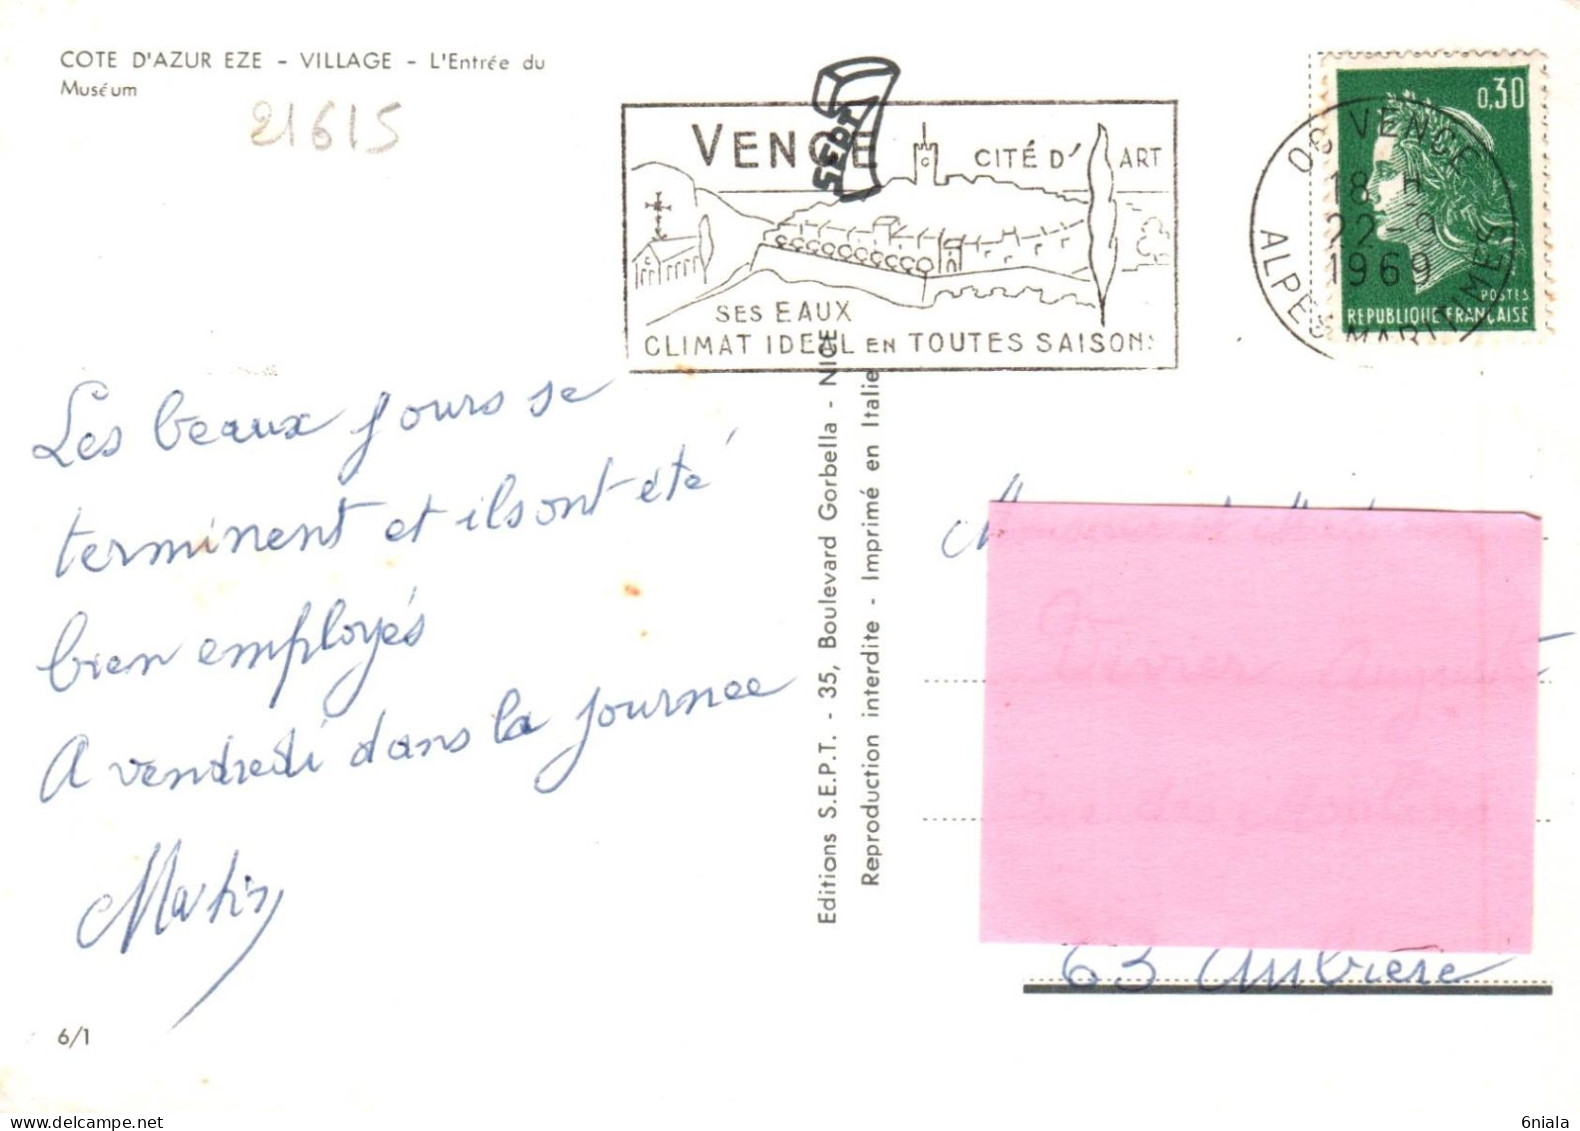 COTE D'AZUR EZE - VILLAGE - L'Entrée du
Muséum
21615
VENCE
CITÉ D'ART
SES EAUX
CLIMAT IDEAL EN TOUTES SAISONS
SEPT
06 VENCE
18 H
22-9
1969
ALPES MARITIMES
0,30
POSTES
REPUBLIQUE FRANÇAISE
Les beaux jours se
terminent et ils ont été
bien employés
A vendredi dans la journee
Martin
6/1
Editions S.E.P.T. - 35, Boulevard Gorbella - NICE
Reproduction interdite - Imprimé en Italie
63 Aubiere
6niala